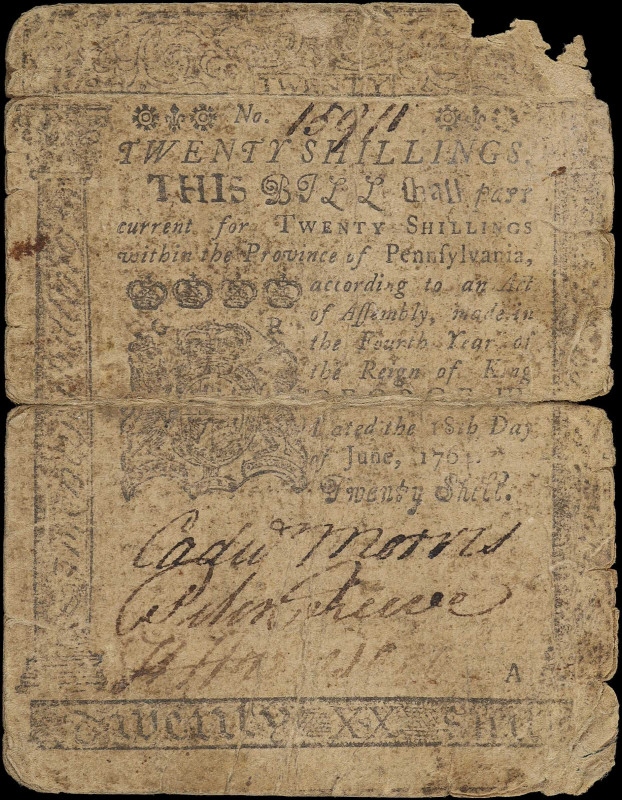 TWENTY
No. 15911
TWENTY SHILLINGS.
THIS BILL shall pass
current for TWENTY SHILLINGS
within the Province of Pennſylvania,
according to an Act
of Aſſembly, made in
the Fourth Year of
the Reign of King
GEORGE III.
Dated the 18th Day
of June, 1764.
Twenty Shill.
Cadwr Morris
A
Twenty XX Shill